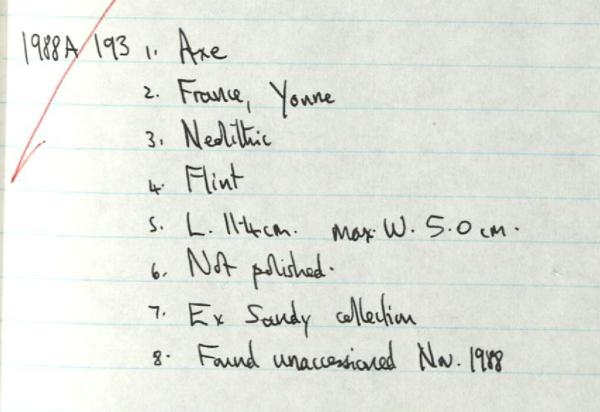 1988A 193 1. Axe
2. France, Yonne
3. Neolithic
4. Flint
5. L. 11.4cm. max. W. 5.0 cm.
6. Not polished.
7. Ex Sandy collection
8. Found unaccessioned Nov. 1988